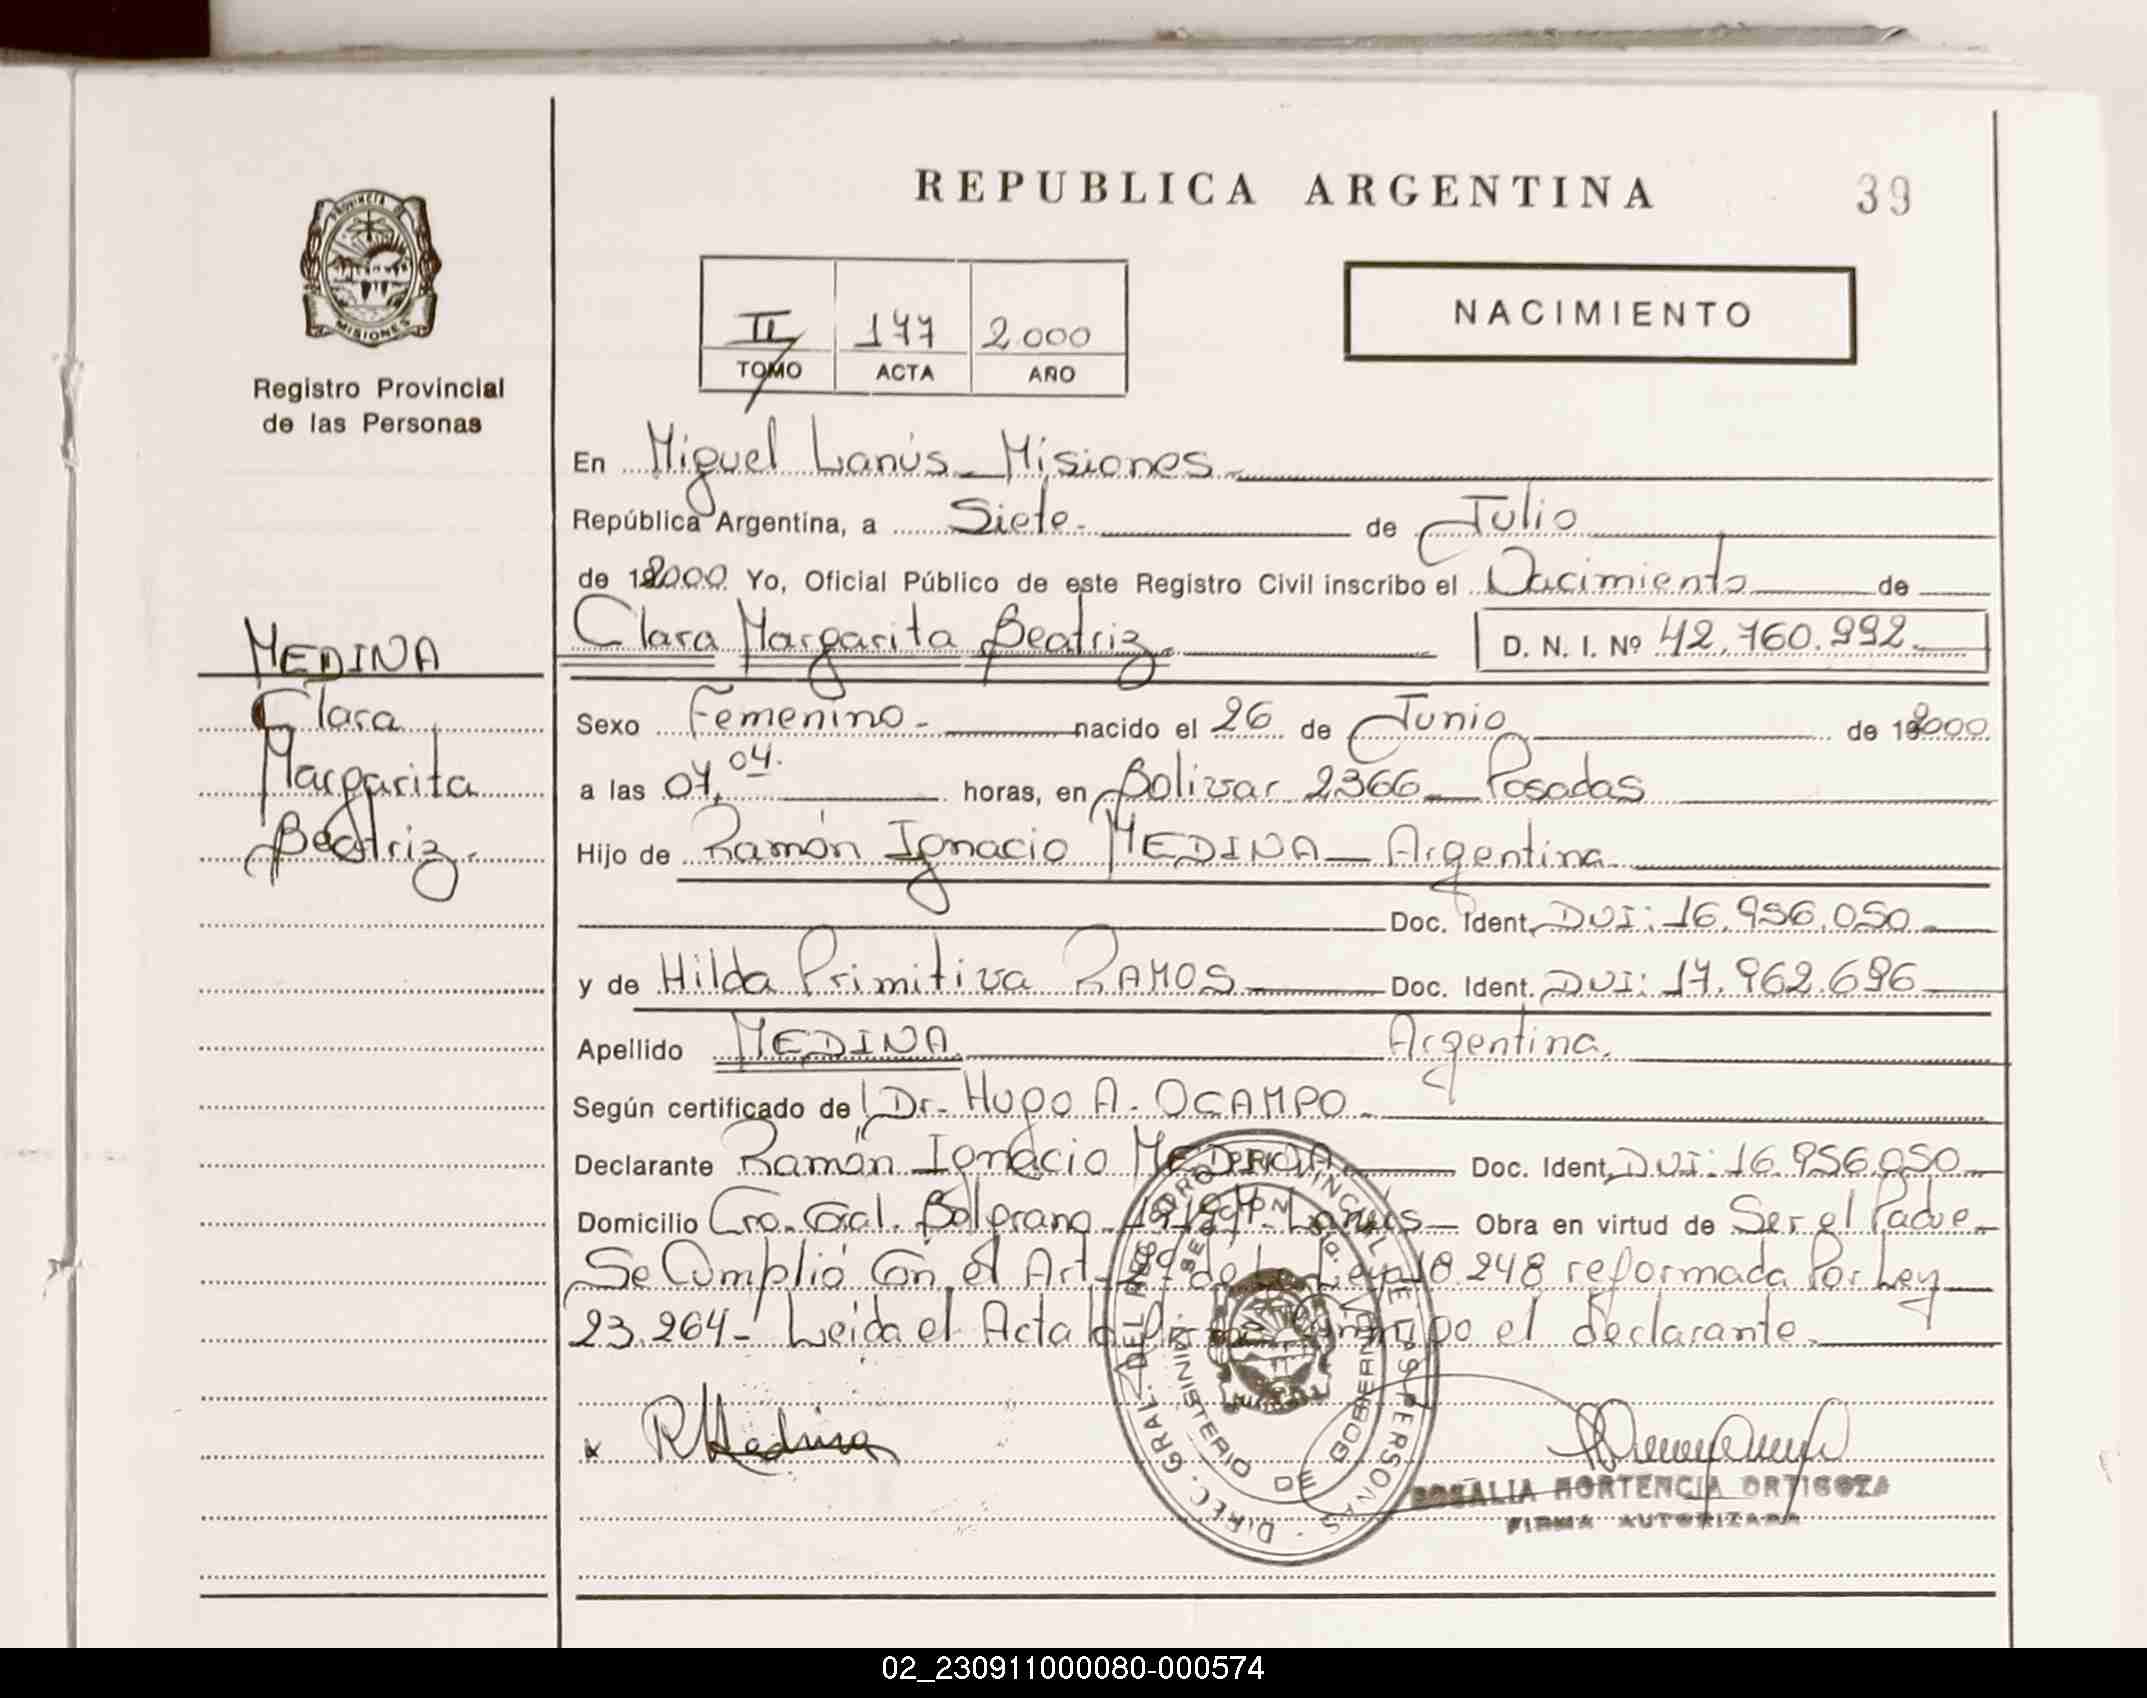 REPUBLICA ARGENTINA
39
PROVINCIA DE
MISIONES
Registro Provincial
de las Personas
II 177 2.000
TOMO ACTA AÑO
NACIMIENTO
En Miguel Lanús - Misiones.
República Argentina, a Siete. de Julio
de 2000 Yo, Oficial Público de este Registro Civil inscribo el Nacimiento de
Clara Margarita Beatriz. D. N. I. Nº 42.760.992.
MEDINA
Clara
Margarita
Beatriz.
Sexo Femenino - nacido el 26 de Junio de 2000
a las 07,04. horas, en Bolivar 2366 - Posadas
Hijo de Ramón Ignacio MEDINA - Argentina
Doc. Ident. DNI: 16.956.050
y de Hilda Primitiva RAMOS Doc. Ident. DNI: 17.962.696
Apellido MEDINA Argentina.
Según certificado de Dr. Hugo A. OCAMPO -
Declarante Ramón Ignacio MEDINA Doc. Ident. DNI: 16.956.050
Domicilio Cro. Gral. Belgrano Lanús - Obra en virtud de Ser el Padre
Se Cumplió Con el Art. de la Ley 18.248 reformada Por Ley
23.264 - Leida el Acta la Firma Conmigo el declarante.
R Medina
DIREC. GRAL. DEL REG. PROVINCIAL DE LAS PERSONAS
MINISTERIO DE GOBIERNO
ROSALIA HORTENCIA ORTIGOZA
FIRMA AUTORIZADA
02_230911000080-000574